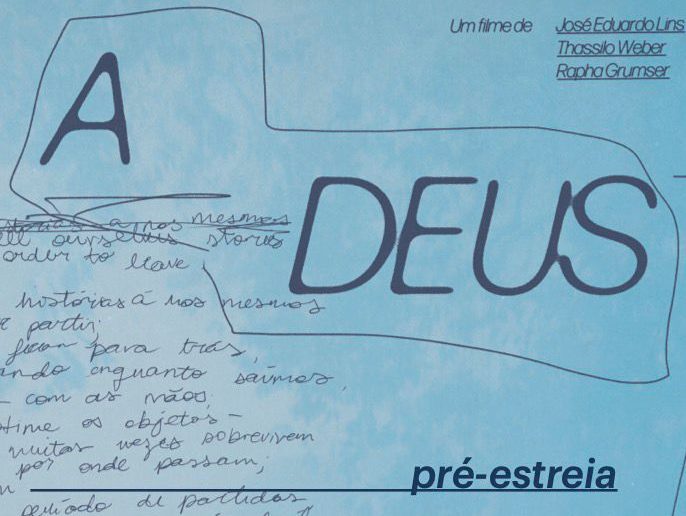 Um filme de José Eduardo Lins
Thassilo Weber
Rapha Grumser
A
DEUS
a nos mesmos
ourselves stories
order to leave
histórias á nos mesmos
partir;
ficam para trás,
enquanto saímos,
com as mãos.
os objetos –
muitas vezes sobrevivem
por onde passam;
período de partidas
pré-estreia